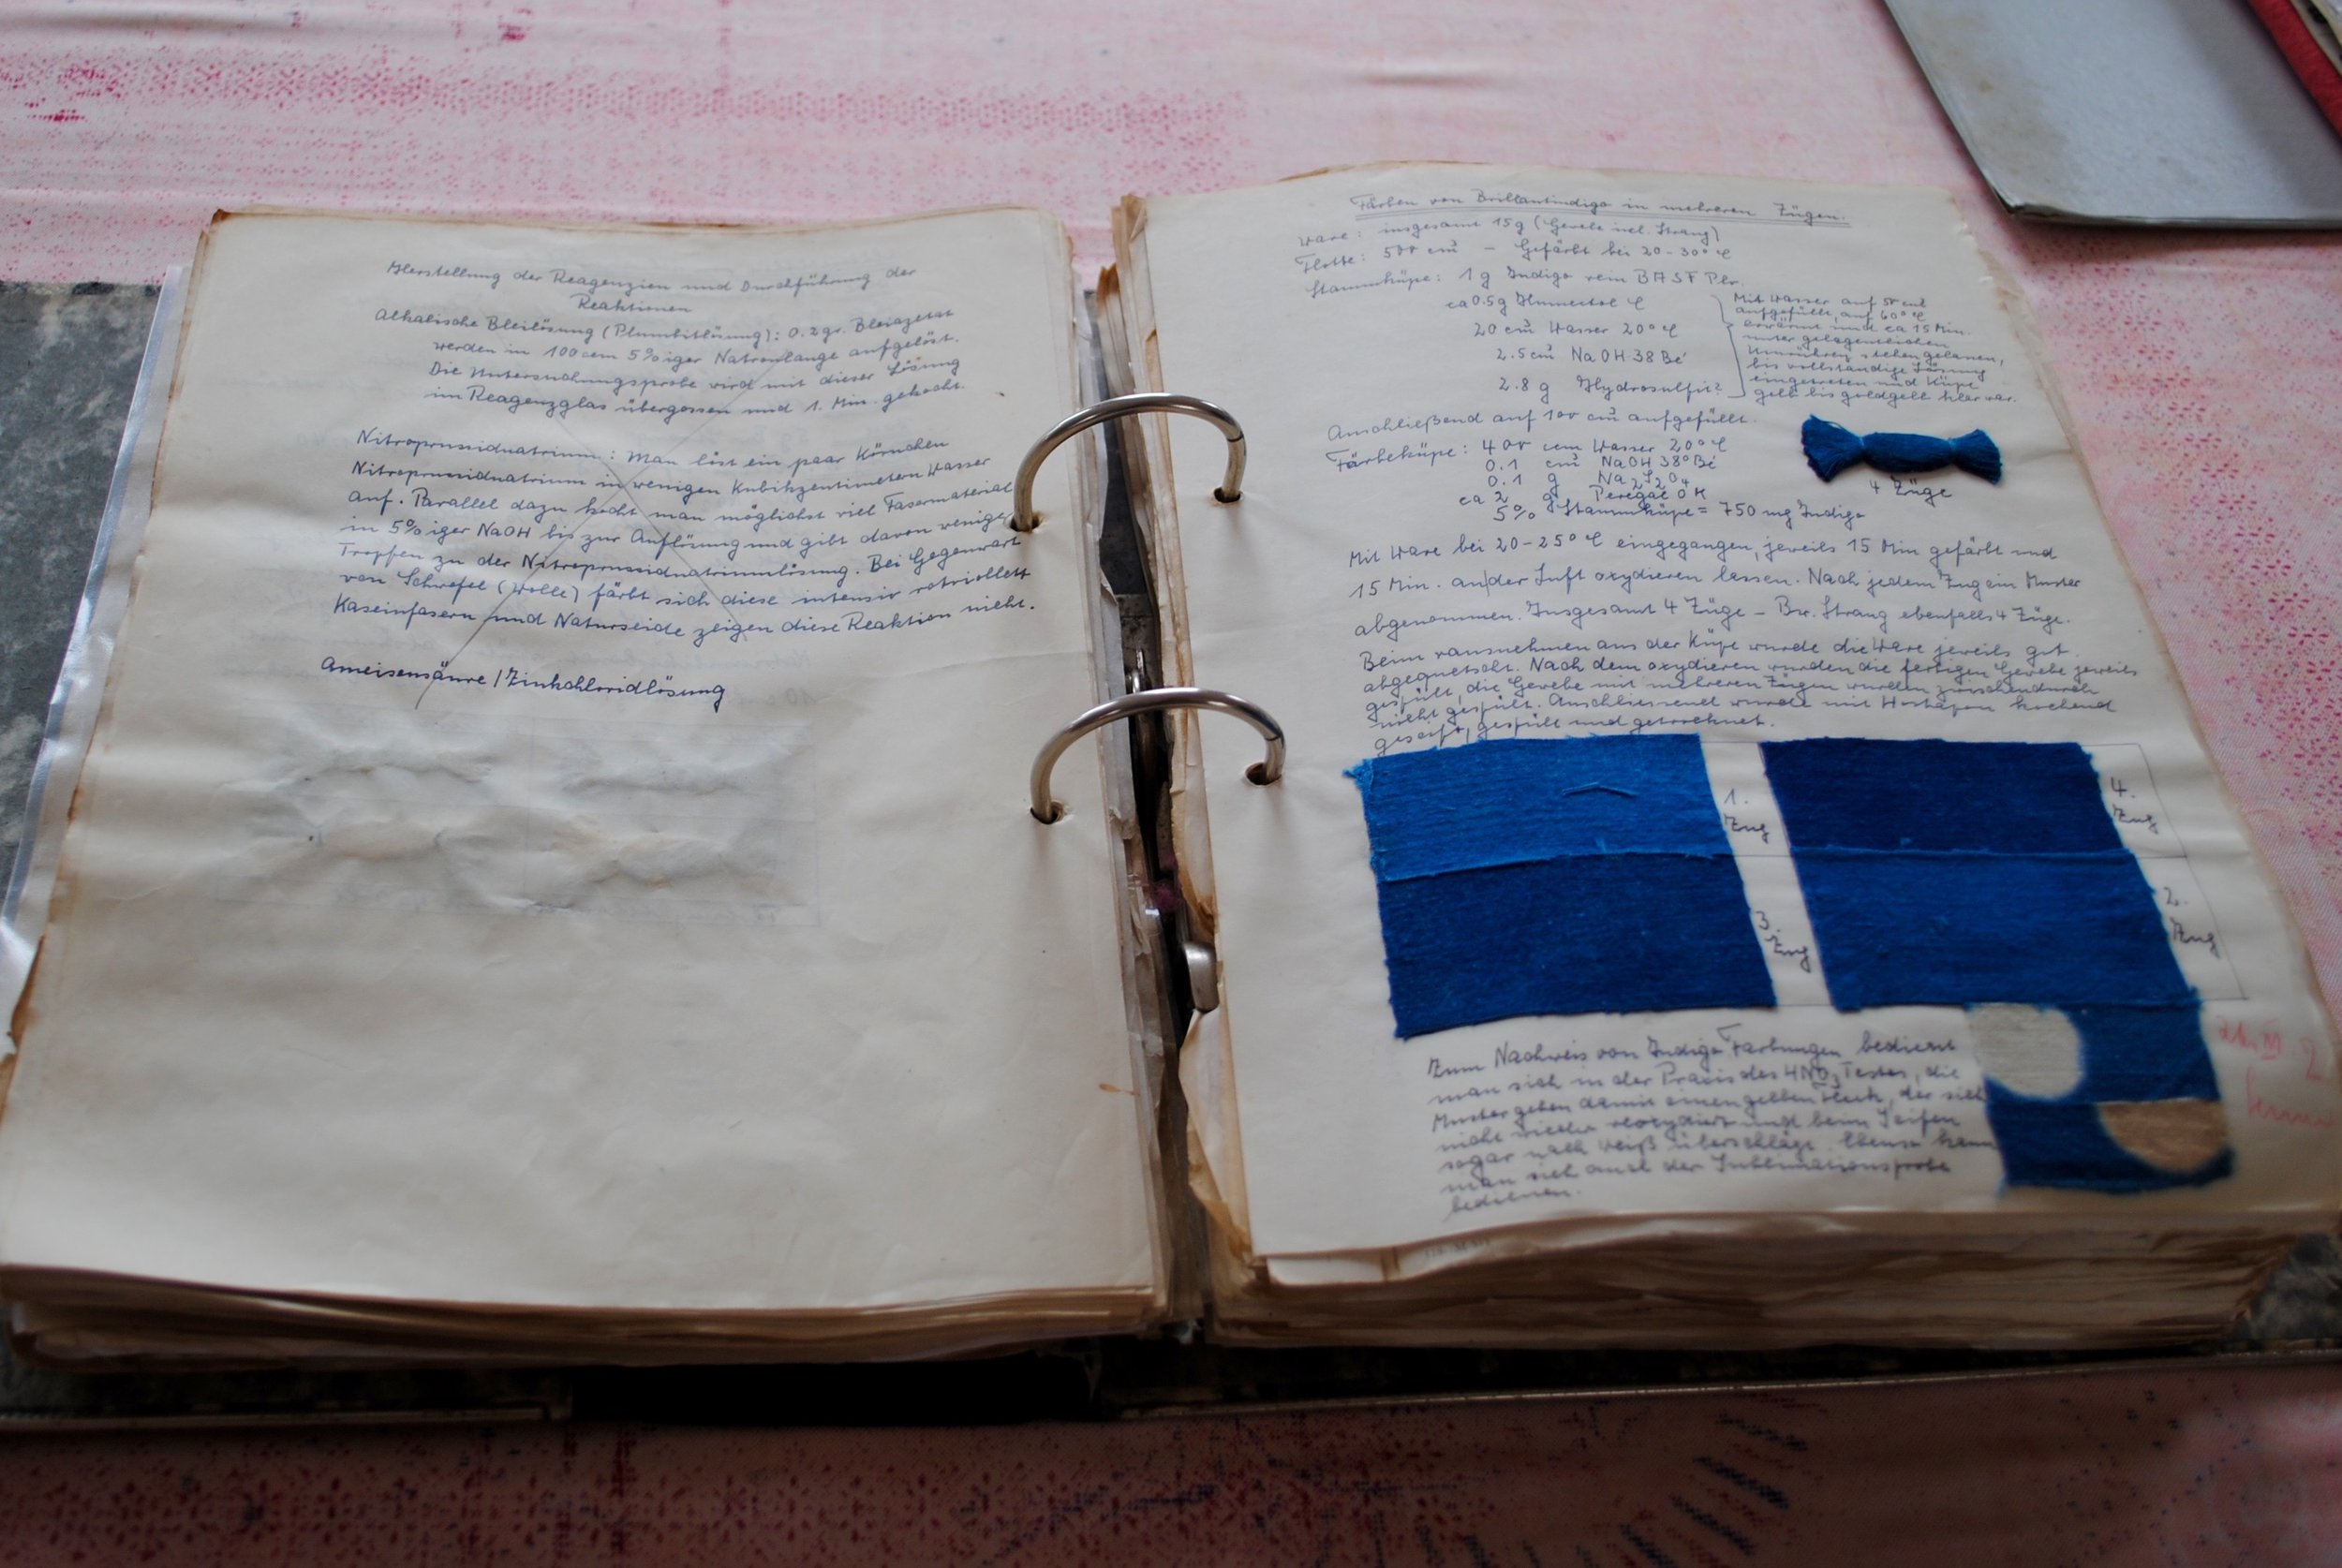 Herstellung der Reagenzien und Durchführung der
Reaktionen
Alkalische Bleilösung (Plumbitlösung): 0.2gr. Bleiazetat
werden in 100ccm 5%iger Natronlauge aufgelöst.
Die Untersuchungsprobe wird mit dieser Lösung
im Reagenzglas übergossen und 1. Min. gekocht.
Nitroprussidnatrium: Man löst ein paar Körnchen
Nitroprussidnatrium in wenigen Kubikzentimetern Wasser
auf. Parallel dazu kocht man möglichst viel Fasermaterial
in 5%iger NaOH bis zur Auflösung und gibt davon wenige
Tropfen zu der Nitroprussidnatriumlösung. Bei Gegenwart
von Schwefel (Wolle) färbt sich diese intensiv rotviolett
Kaseinfasern und Naturseide zeigen diese Reaktion nicht.
Ameisensäure/Zinkchloridlösung
Färben von Brillantindigo in mehreren Zügen.
Ware: insgesamt 15g (Gewebe incl. Strang)
Flotte: 500 cm³ - Gefärbt bei 20-30°C
Stammküpe: 1g Indigo rein BASF Plv.
ca 0.5g Humectol C
20 cm³ Wasser 20°C
2.5cm³ NaOH 38 Bé
2.8 g Hydrosulfit
Mit Wasser auf 50 cm³
aufgefüllt, auf 60°C
erwärmt und ca 15 Min.
unter gelegentlichem
Umrühren stehen gelassen,
bis vollständige Lösung
eingetreten und Küpe
gelb bis goldgelb klar war.
Anschließend auf 100 cm³ aufgefüllt.
Färbeküpe: 400 ccm Wasser 20°C
0.1 cm³ NaOH 38°Bé
0.1 g Na₂S₂O₄
ca 2 g Peregal OK
5% Stammküpe = 750 mg Indigo
4 Züge
Mit Ware bei 20-25°C eingegangen, jeweils 15 Min gefärbt und
15 Min. an der Luft oxydieren lassen. Nach jedem Zug ein Muster
abgenommen. Insgesamt 4 Züge - Bw. Strang ebenfalls 4 Züge.
Beim rausnehmen aus der Küpe wurde die Ware jeweils gut
abgequetscht. Nach dem oxydieren wurden die fertigen Gewebe jeweils
gespült, die Gewebe mit mehreren Zügen wurden zwischendurch
nicht gespült. Anschliessend wurde mit Hostapon kochend
geseift, gespült und getrocknet.
1.
Zug
4.
Zug
3.
Zug
2.
Zug
Zum Nachweis von Indigo Färbungen bedient
man sich in der Praxis des HNO₃ Testes, die
Muster geben damit einen gelben Fleck, der sich
nicht wieder reoxydiert und beim Seifen
sogar nach weiß überschlägt. Ebenso kann
man sich auch der Sublimationsprobe
bedienen.
2